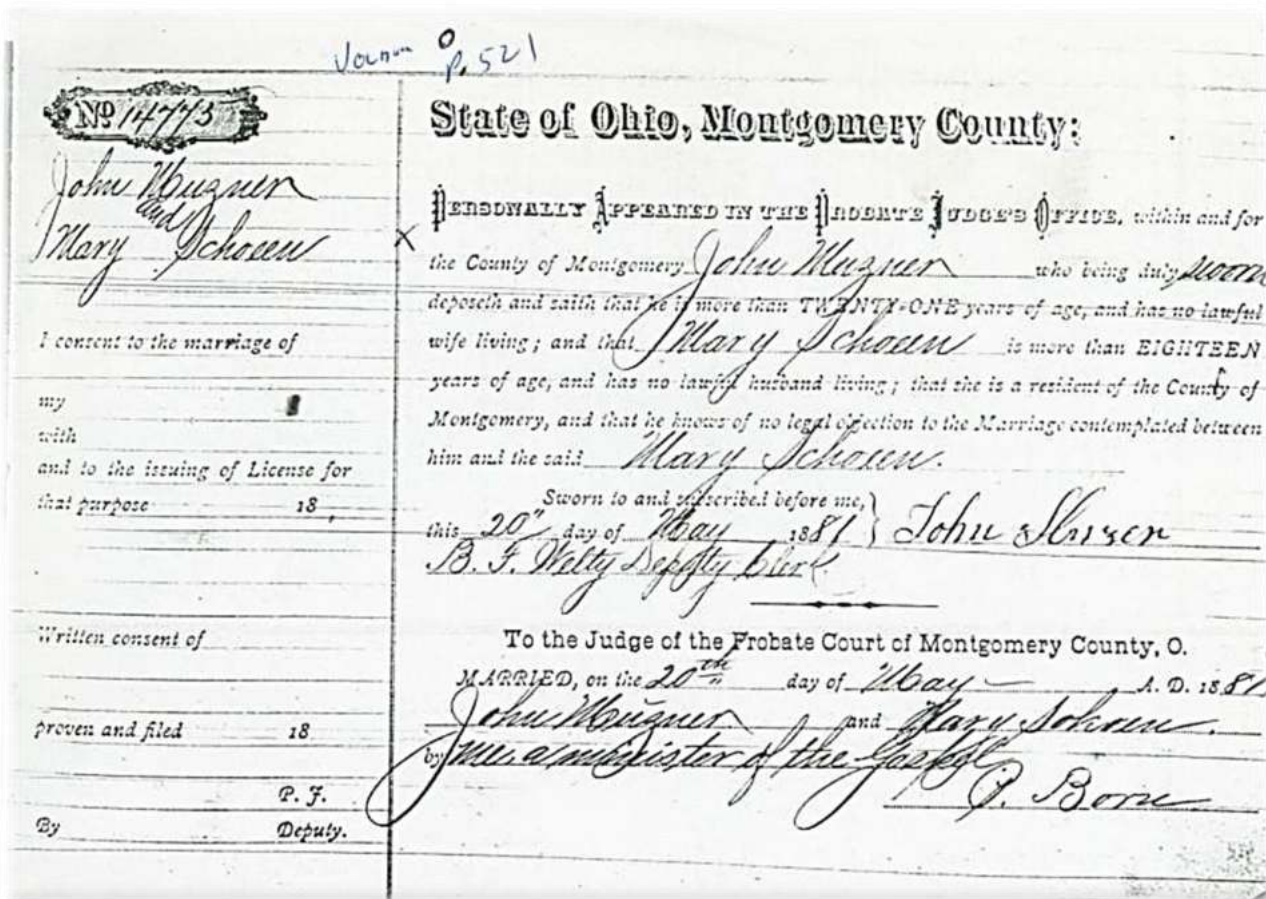 O
P. 521
No 14773
John Muzner
and
Mary Schoen
I consent to the marriage of
my
with
and to the issuing of License for
that purpose 18 ,
Written consent of
proven and filed 18
P. J.
By Deputy.
State of Ohio, Montgomery County:
X
PERSONALLY APPEARED IN THE PROBATE JUDGE'S OFFICE, within and for
the County of Montgomery John Muzner who being duly sworn
deposeth and saith that he is more than TWENTY-ONE years of age, and has no lawful
wife living; and that Mary Schoen is more than EIGHTEEN
years of age, and has no lawful husband living; that she is a resident of the County of
Montgomery, and that he knows of no legal objection to the Marriage contemplated between
him and the said Mary Schoen.
Sworn to and subscribed before me,
this 20" day of May 1881 } John
B. F. Welty Deputy Clerk
To the Judge of the Probate Court of Montgomery County, O.
MARRIED, on the 20th day of May A. D. 1881
John Muzner and Mary Schoen.
by me, a minister of the Gospel
Born